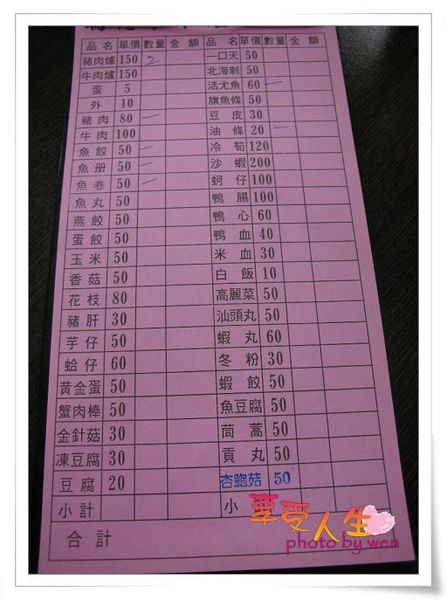 品名 單價 數量 金額
豬肉爐 150 2
牛肉爐 150
蛋 5
外 10
豬肉 80 一
牛肉 100
魚餃 50 一
魚册 50 一
魚卷 50 一
魚丸 50
燕餃 50
蛋餃 50
玉米 50
香菇 50
花枝 80
豬肝 30
芋仔 50
蛤仔 60
黃金蛋 50
蟹肉棒 50
金針菇 30
凍豆腐 30
豆腐 20
小計
品名 單價 數量 金額
一口天 50
北海刺 50
活尤魚 60 一
旗魚條 50
豆皮 30
油條 20 一
冷筍 120
沙蝦 200
蚵仔 100
鴨腸 100
鴨心 60
鴨血 40
米血 30
白飯 10
高麗菜 50
汕頭丸 50
蝦丸 60
冬粉 30
蝦餃 50
魚豆腐 50
茼蒿 50
貢丸 50
杏鮑菇 50
小
合計
享受人生
photo by wen